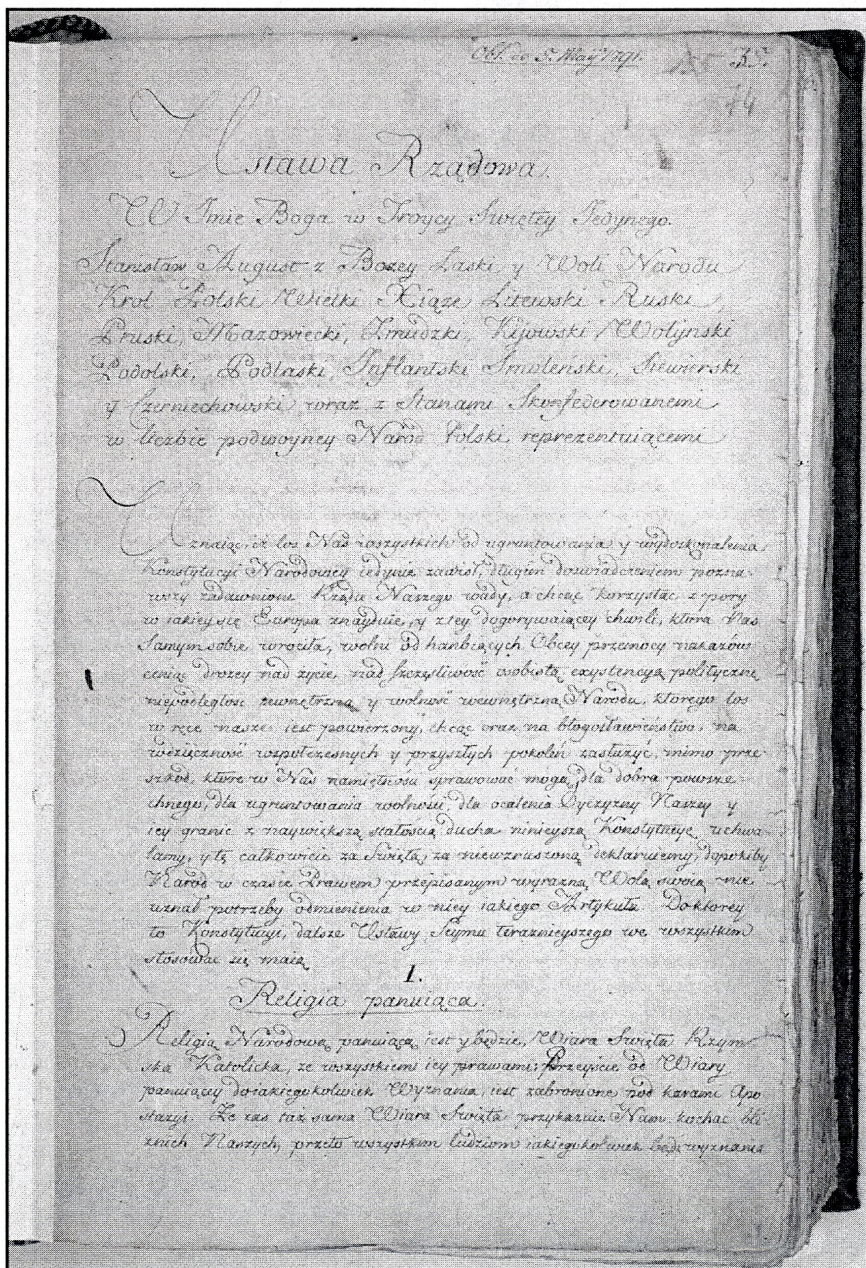 Obl. de 5. Maij 1791.
35.
74
Ustawa Rządowa.
W Imie Boga w Troycy Swiętey Jedynego.
Stanisław August z Bożey Łaski, y Woli Narodu
Krol Polski, Wielki Xiąże Litewski Ruski,
Pruski, Mazowiecki, Zmudzki, Kijowski, Wołynski
Podolski, Podlaski, Inflantski Smoleński, Siewierski
y Czerniechowski, wraz z Stanami Skonfederowanemi
w liczbie podwoyney Narod Polski reprezentuiącemi
Uznaiąc, iż los Nas wszystkich od ugruntowania y wydoskonalenia
Konstytucyi Narodowey iedynie zawisł, długiem doswiadczeniem pozna
wszy zadawnione Rządu Naszego wady, a chcąc korzystać z pory
w iakiey się Europa znayduie, y z tey dogorywaiącey chwili, ktora Nas
samym sobie wrociła, wolni od hanbiących Obcey przemocy nakazow
ceniąc drożey nad życie, nad szczęśliwość osobistą, exystencyą polityczną
niepodległość zewnętrzną y wolność wewnętrzną Narodu, ktorego los
w ręce nasze iest powierzony, chcąc oraz na błogosławieństwo, na
wdzięczność wspołczesnych y przyszłych pokoleń zasłużyć, mimo prze-
szkod, ktore w Nas namiętności sprawować mogą, dla dobra powsze-
chnego, dla ugruntowania wolności, dla ocalenia Oyczyzny Naszey y
iey granic z naywiększą stałością ducha ninieyszą Konstytucyę uchwa
lamy, y tę całkowicie za Swiętą, za niewzruszoną deklaruiemy, dopokiby
Narod w czasie Prawem przepisanym wyrazną Wolą swoią nie
uznał potrzeby odmienienia w niey iakiego Artykułu. Do ktorey
to Konstytucyi, dalsze Ustawy Seymu teraznieyszego we wszystkim
stosować się maią
1.
Religia panuiąca.
Religią Narodową panuiącą iest y będzie, Wiara Swięta Rzym
ska Katolicka, ze wszystkiemi iey prawami; Przeyście od Wiary
panuiącey do iakiegokolwiek Wyznania, iest zabronione pod karami Apo
stazyi. Że zas taż sama Wiara Swięta przykazuie Nam kochać bli
znich Naszych, przeto wszystkim ludziom iakiegokolwiek bądź wyznania